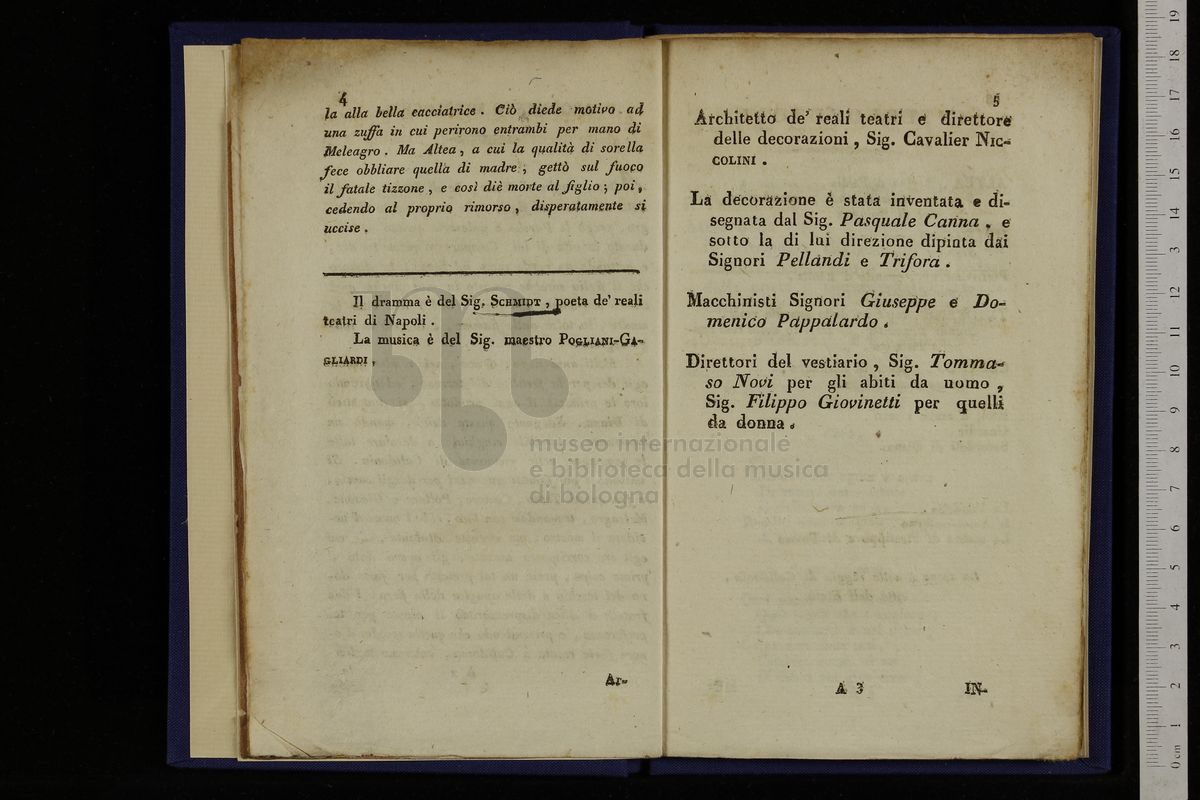 4
la alla bella cacciatrice . Ciò diede motivo ad
una zuffa in cui perirono entrambi per mano di
Meleagro . Ma Altea , a cui la qualità di sorella
fece obbliare quella di madre , gettò sul fuoco
il fatale tizzone , e così diè morte al figlio ; poi ,
cedendo al proprio rimorso , disperatamente si
uccise .
Il dramma è del Sig. SCHMIDT , poeta de' reali
teatri di Napoli .
La musica è del Sig. maestro POGLIANI-GA-
GLIARDI ,
Ar-
5
Architetto de' reali teatri e direttore
delle decorazioni , Sig. Cavalier NIC-
COLINI .
La decorazione è stata inventata e di-
segnata dal Sig. Pasquale Canna , e
sotto la di lui direzione dipinta dai
Signori Pellandi e Trifora .
Macchinisti Signori Giuseppe e Do-
menico Pappalardo .
Direttori del vestiario , Sig. Tomma-
so Novi per gli abiti da uomo ,
Sig. Filippo Giovinetti per quelli
da donna .
A 3
IN-
museo internazionale
e biblioteca della musica
di bologna
0 cm 1 2 3 4 5 6 7 8 9 10 11 12 13 14 15 16 17 18 19